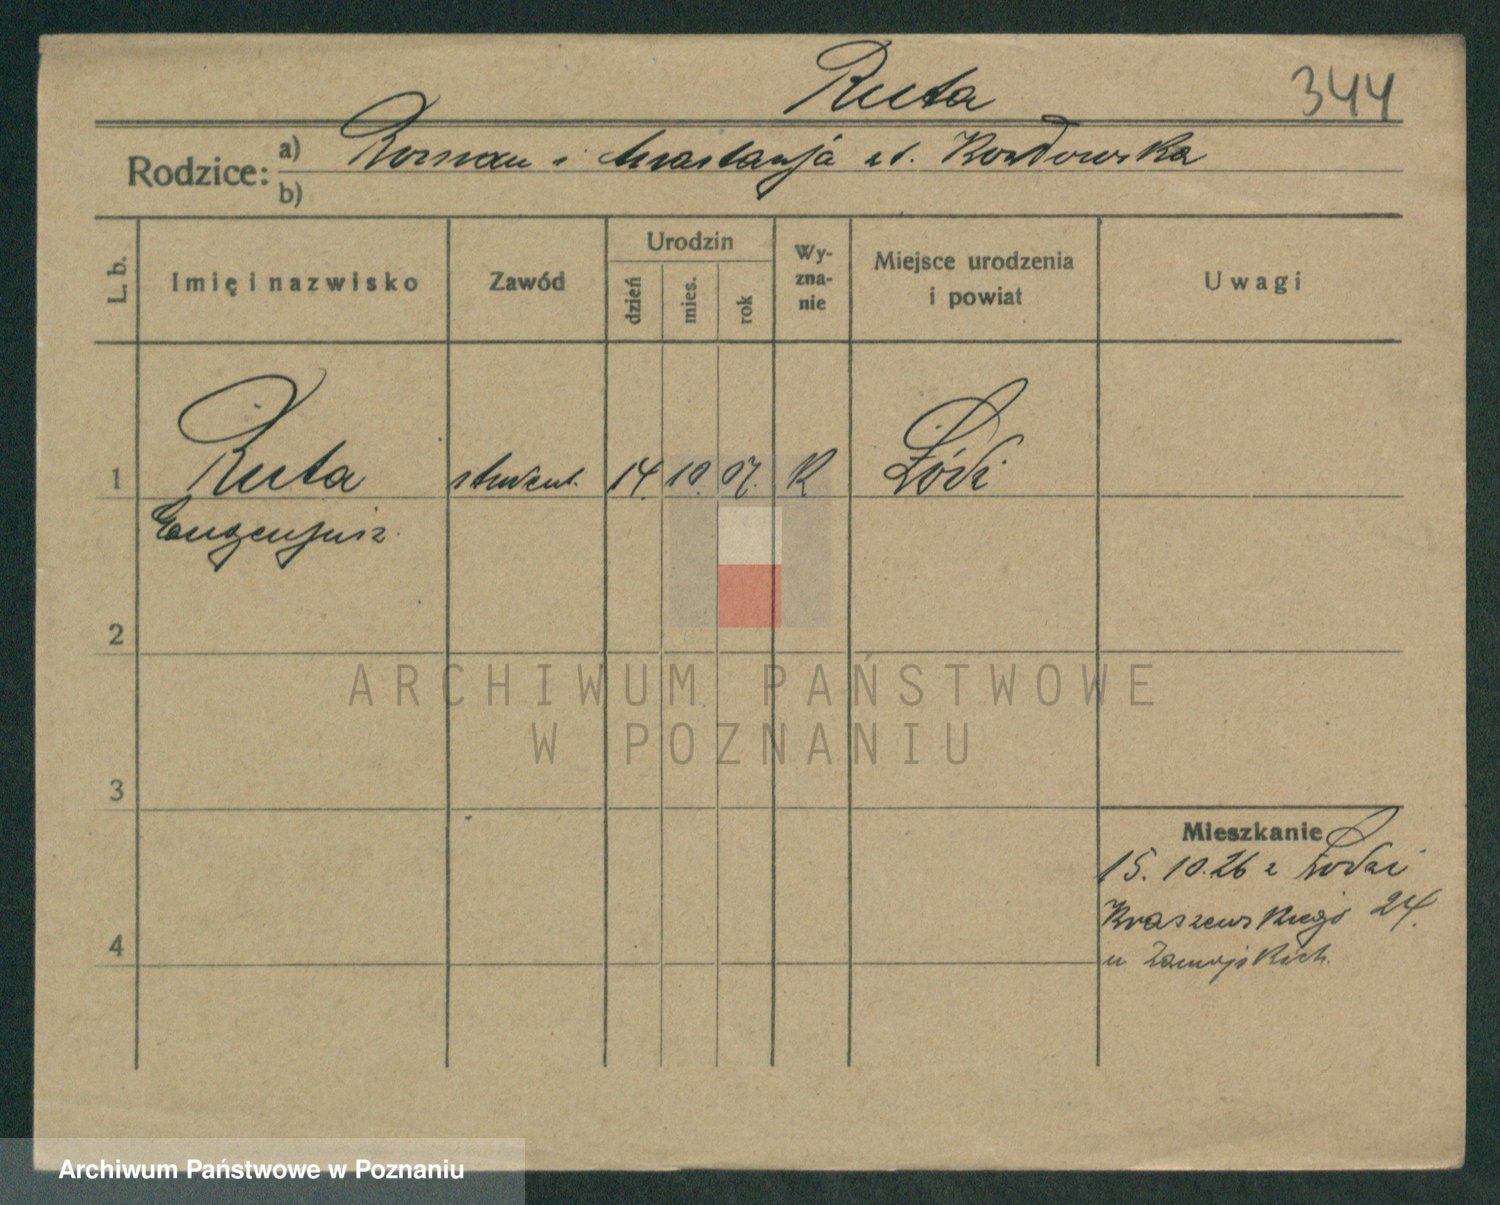 Ruta
344
Rodzice: a) Roman i Anastazja zd. Kozłowska
b)
L. b.
Imię i nazwisko
Zawód
Urodzin
dzień
mies.
rok
Wy-
zna-
nie
Miejsce urodzenia
i powiat
Uwagi
1 Ruta student. 14. 10. 07. R Łódź
Eugenjusz
2
ARCHIWUM PAŃSTWOWE
W POZNANIU
3
Mieszkanie
15. 10. 26 z Łodzi
Kraszewskiego 24.
u Zamojskich.
4
Archiwum Państwowe w Poznaniu